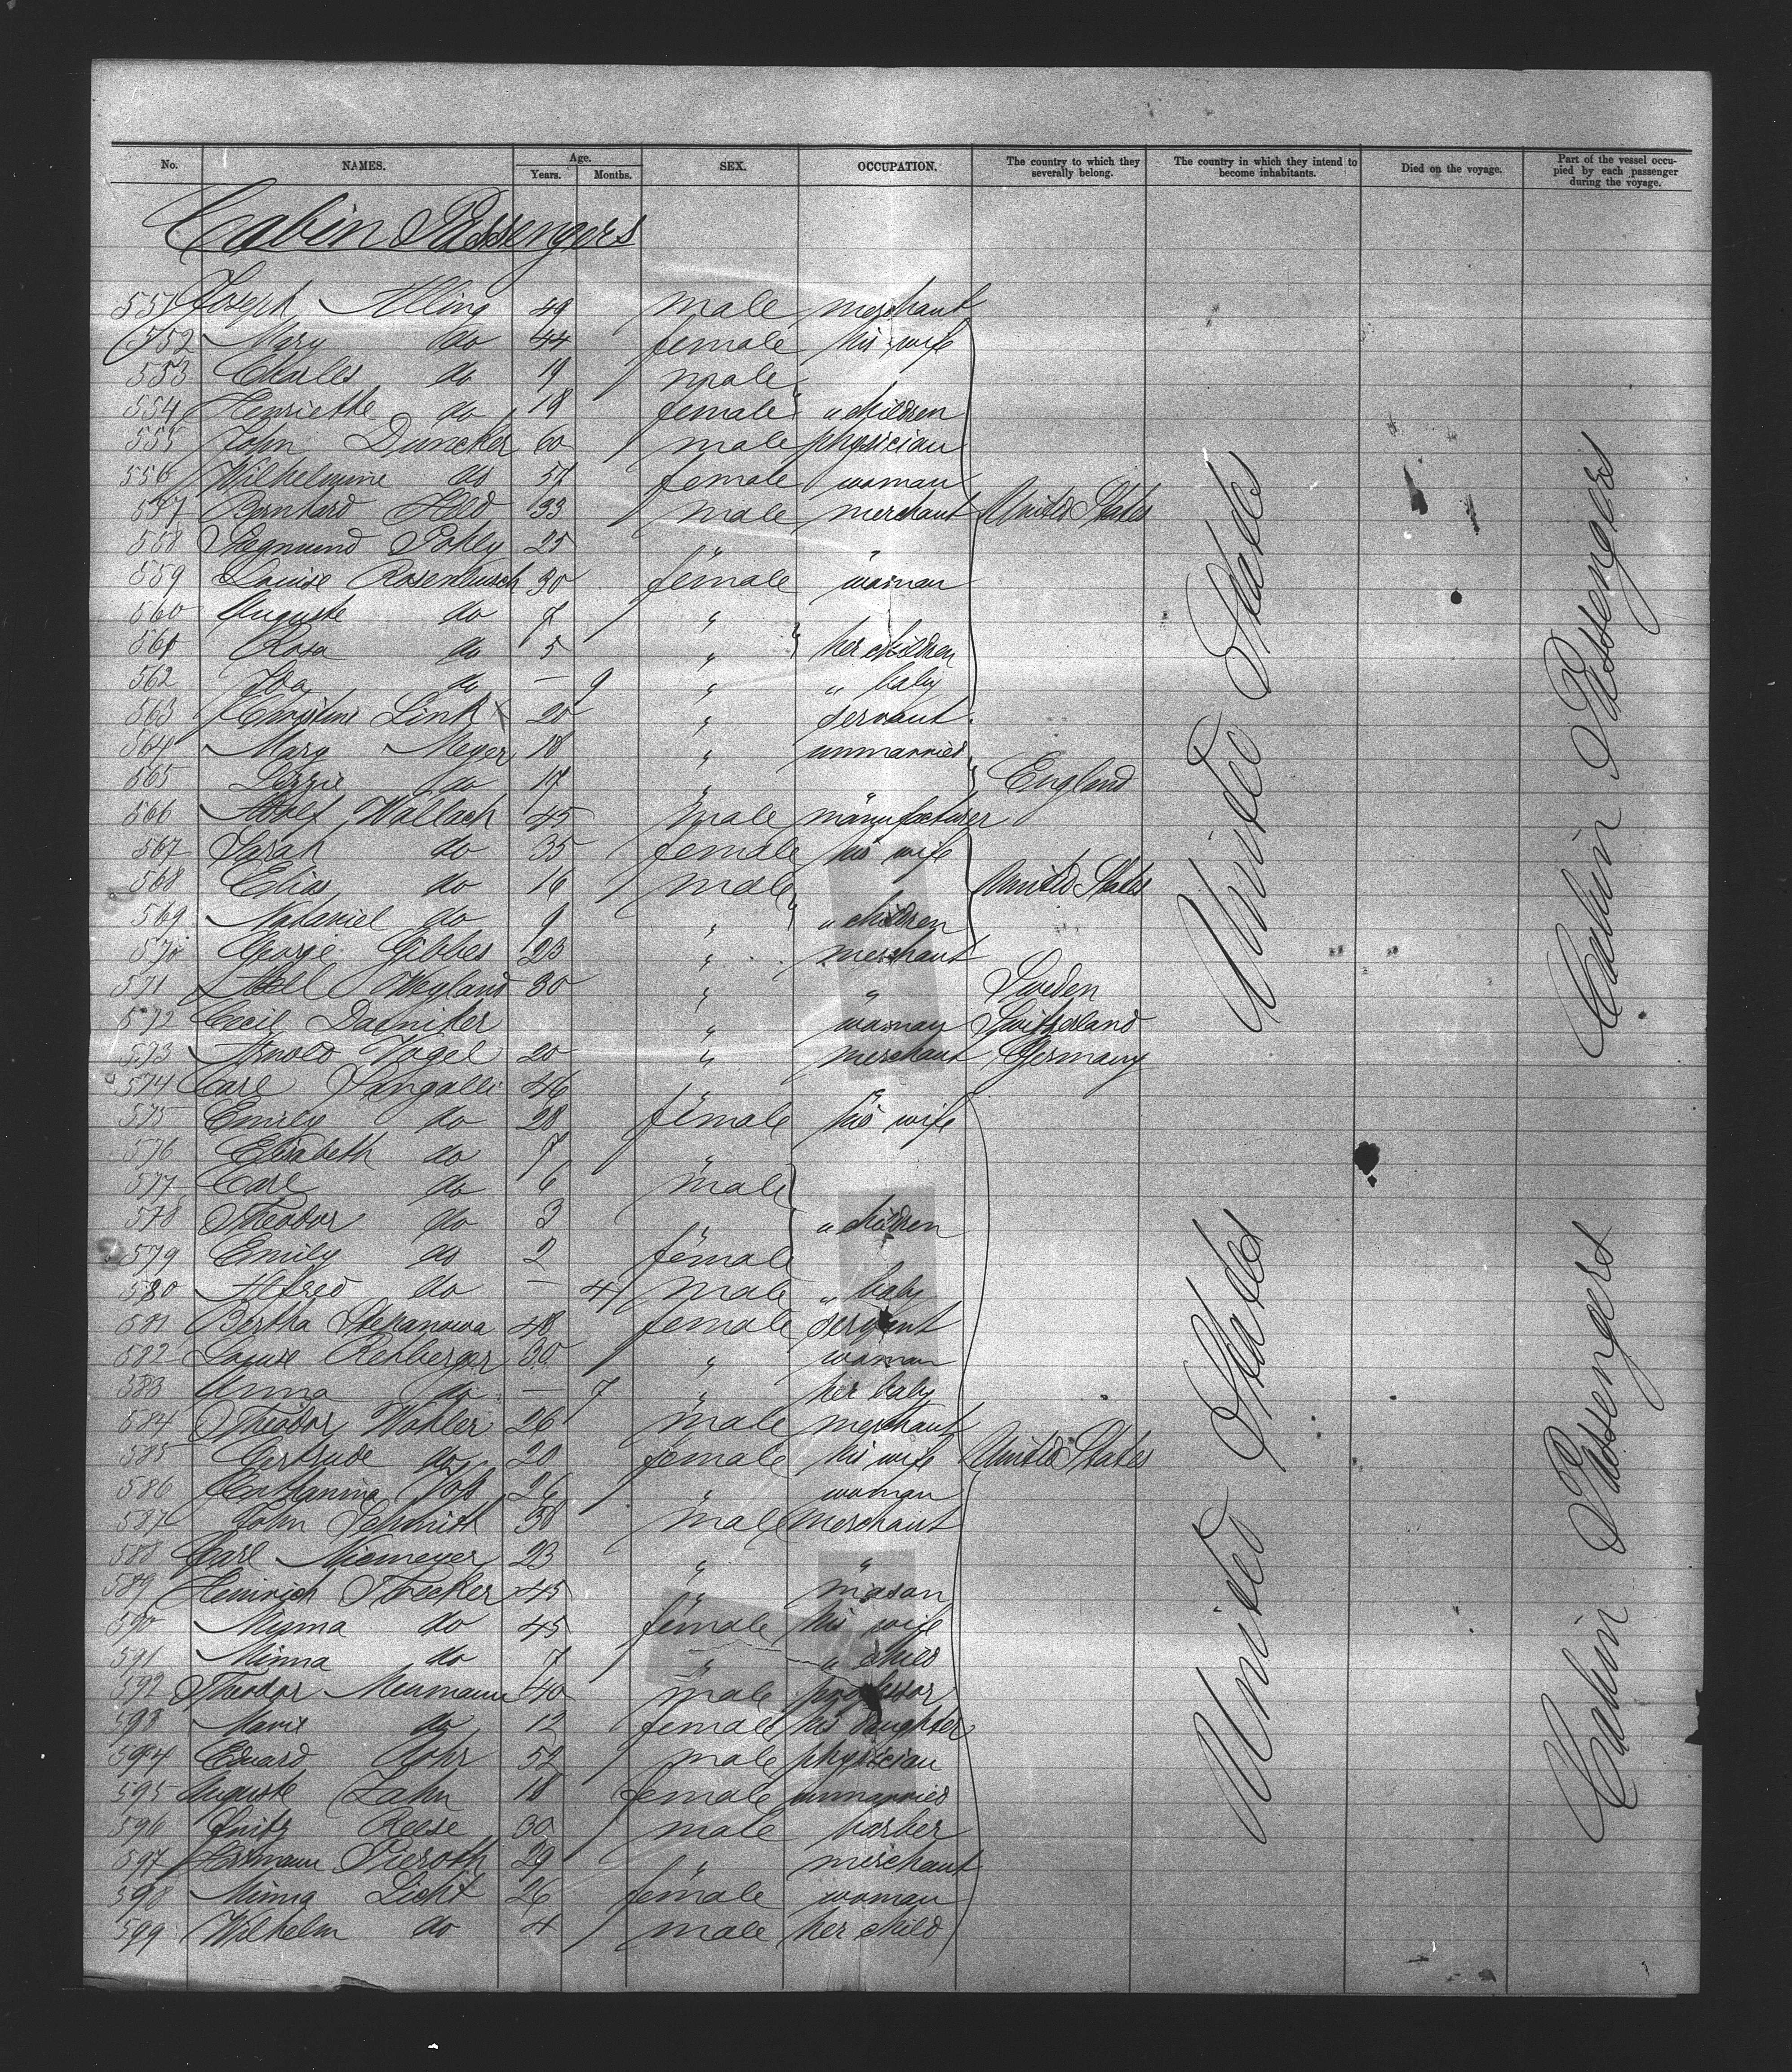 No. NAMES. Age. Years. Months. SEX. OCCUPATION. The country to which they severally belong. The country in which they intend to become inhabitants. Died on the voyage. Part of the vessel occupied by each passenger during the voyage.
Cabin Passengers
551 Joseph Alling 49 male merchant
552 Mary do 44 female his wife
553 Charles do 19 male
554 Henriette do 18 female " children
555 John Duncker 60 male physician
556 Wilhelmine do 57 female woman
557 Bernhard Held 33 male merchant United States
558 Siegmund Pokey 25 " "
559 Louise Rosenbusch 30 female woman
560 Auguste do 7 "
561 Rosa do 5 " her children
562 Ida do — 9 " " baby
563 Christine Link 20 " servant
564 Mary Meyer 18 " unmarried
565 Lizzie do 17 " " England
566 Adolf Wallach 45 male manufacturer
567 Sarah do 35 female his wife
568 Elias do 16 male United States
569 Nathaniel do 9 " " children
570 George Gibbes 23 " merchant
571 Axell Weyland 30 " " Sweden
572 Cecil Daeniker " woman Switzerland
573 Arnold Vogel 20 " merchant Germany
574 Carl Sangalli 46 " "
575 Emily do 28 female his wife
576 Elisabeth do 7 "
577 Carl do 6 male
578 Theodor do 3 " " children
579 Emily do 2 female
580 Alfred do — 4 male " baby
581 Bertha Stepanowa 48 female servant
582 Louise Rehberger 30 " woman
583 Anna do — 7 " her baby
584 Theodor Wohler 26 male merchant
585 Gertrude do 20 female his wife United States
586 Catharina Voß 26 " woman
587 John Schmidt 38 male merchant
588 Carl Niemeyer 23 " "
589 Heinrich Stoecker 45 " mason
590 Minna do 45 female his wife
591 Minna do 7 " " child
592 Theodor Neumann 40 male professor
593 Marie do 12 female his daughter
594 Eduard Rohr 52 male physician
595 Auguste Zahn 18 female unmarried
596 Fritz Reese 30 male barber
597 Hermann Pieroth 29 " merchant
598 Minna Licht 26 female woman
599 Wilhelm do 4 male her child
United States
United States
Cabin Passengers
Cabin Passengers